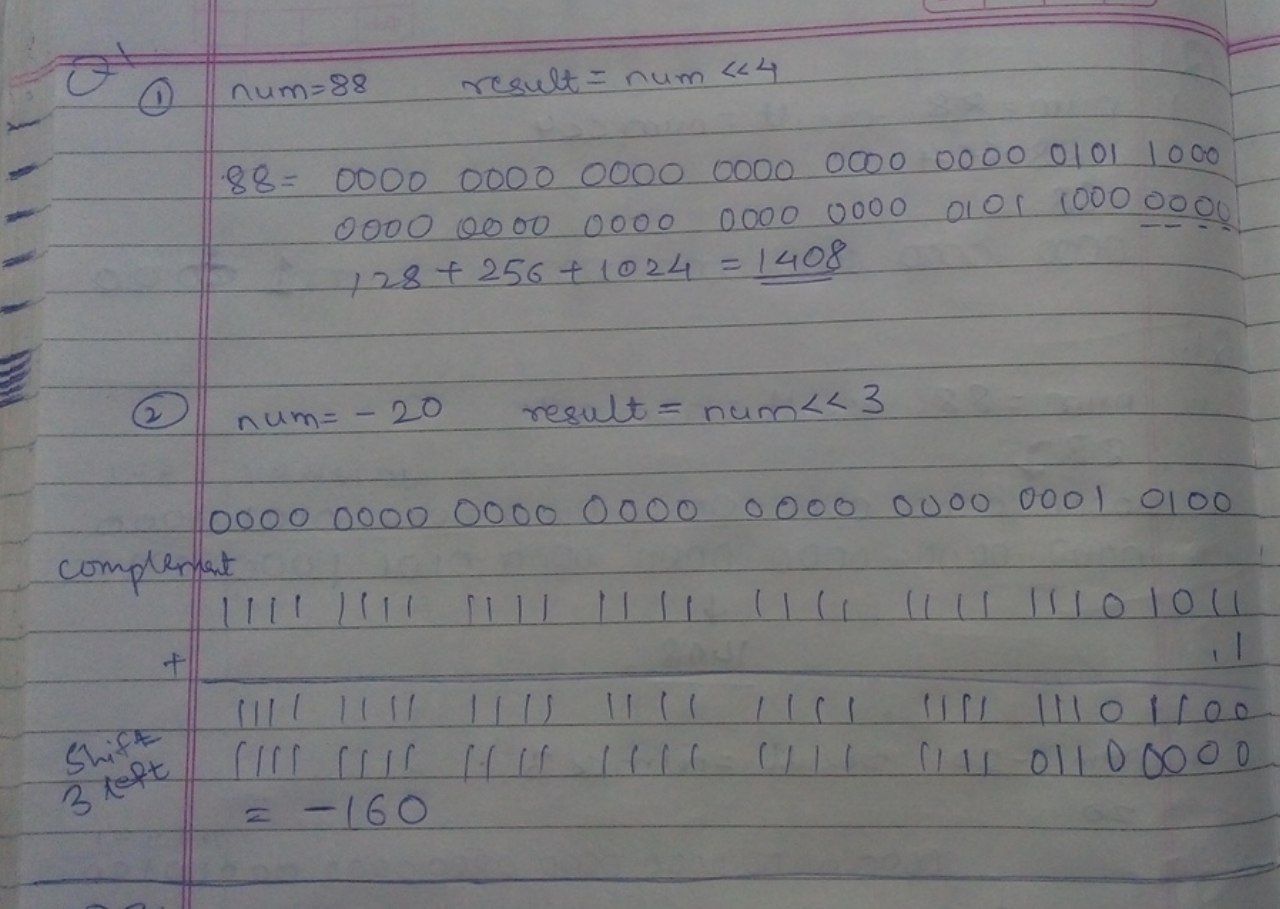 Q1
① num=88 result = num <<4
88= 0000 0000 0000 0000 0000 0000 0101 1000
0000 0000 0000 0000 0000 0101 1000 0000
128 + 256 + 1024 = 1408
② num= - 20 result = num<< 3
0000 0000 0000 0000 0000 0000 0001 0100
complement
1111 1111 1111 1111 1111 1111 1110 1011
+ 1
1111 1111 1111 1111 1111 1111 1110 1100
shift 3 left
1111 1111 1111 1111 1111 1111 0110 0000
= -160